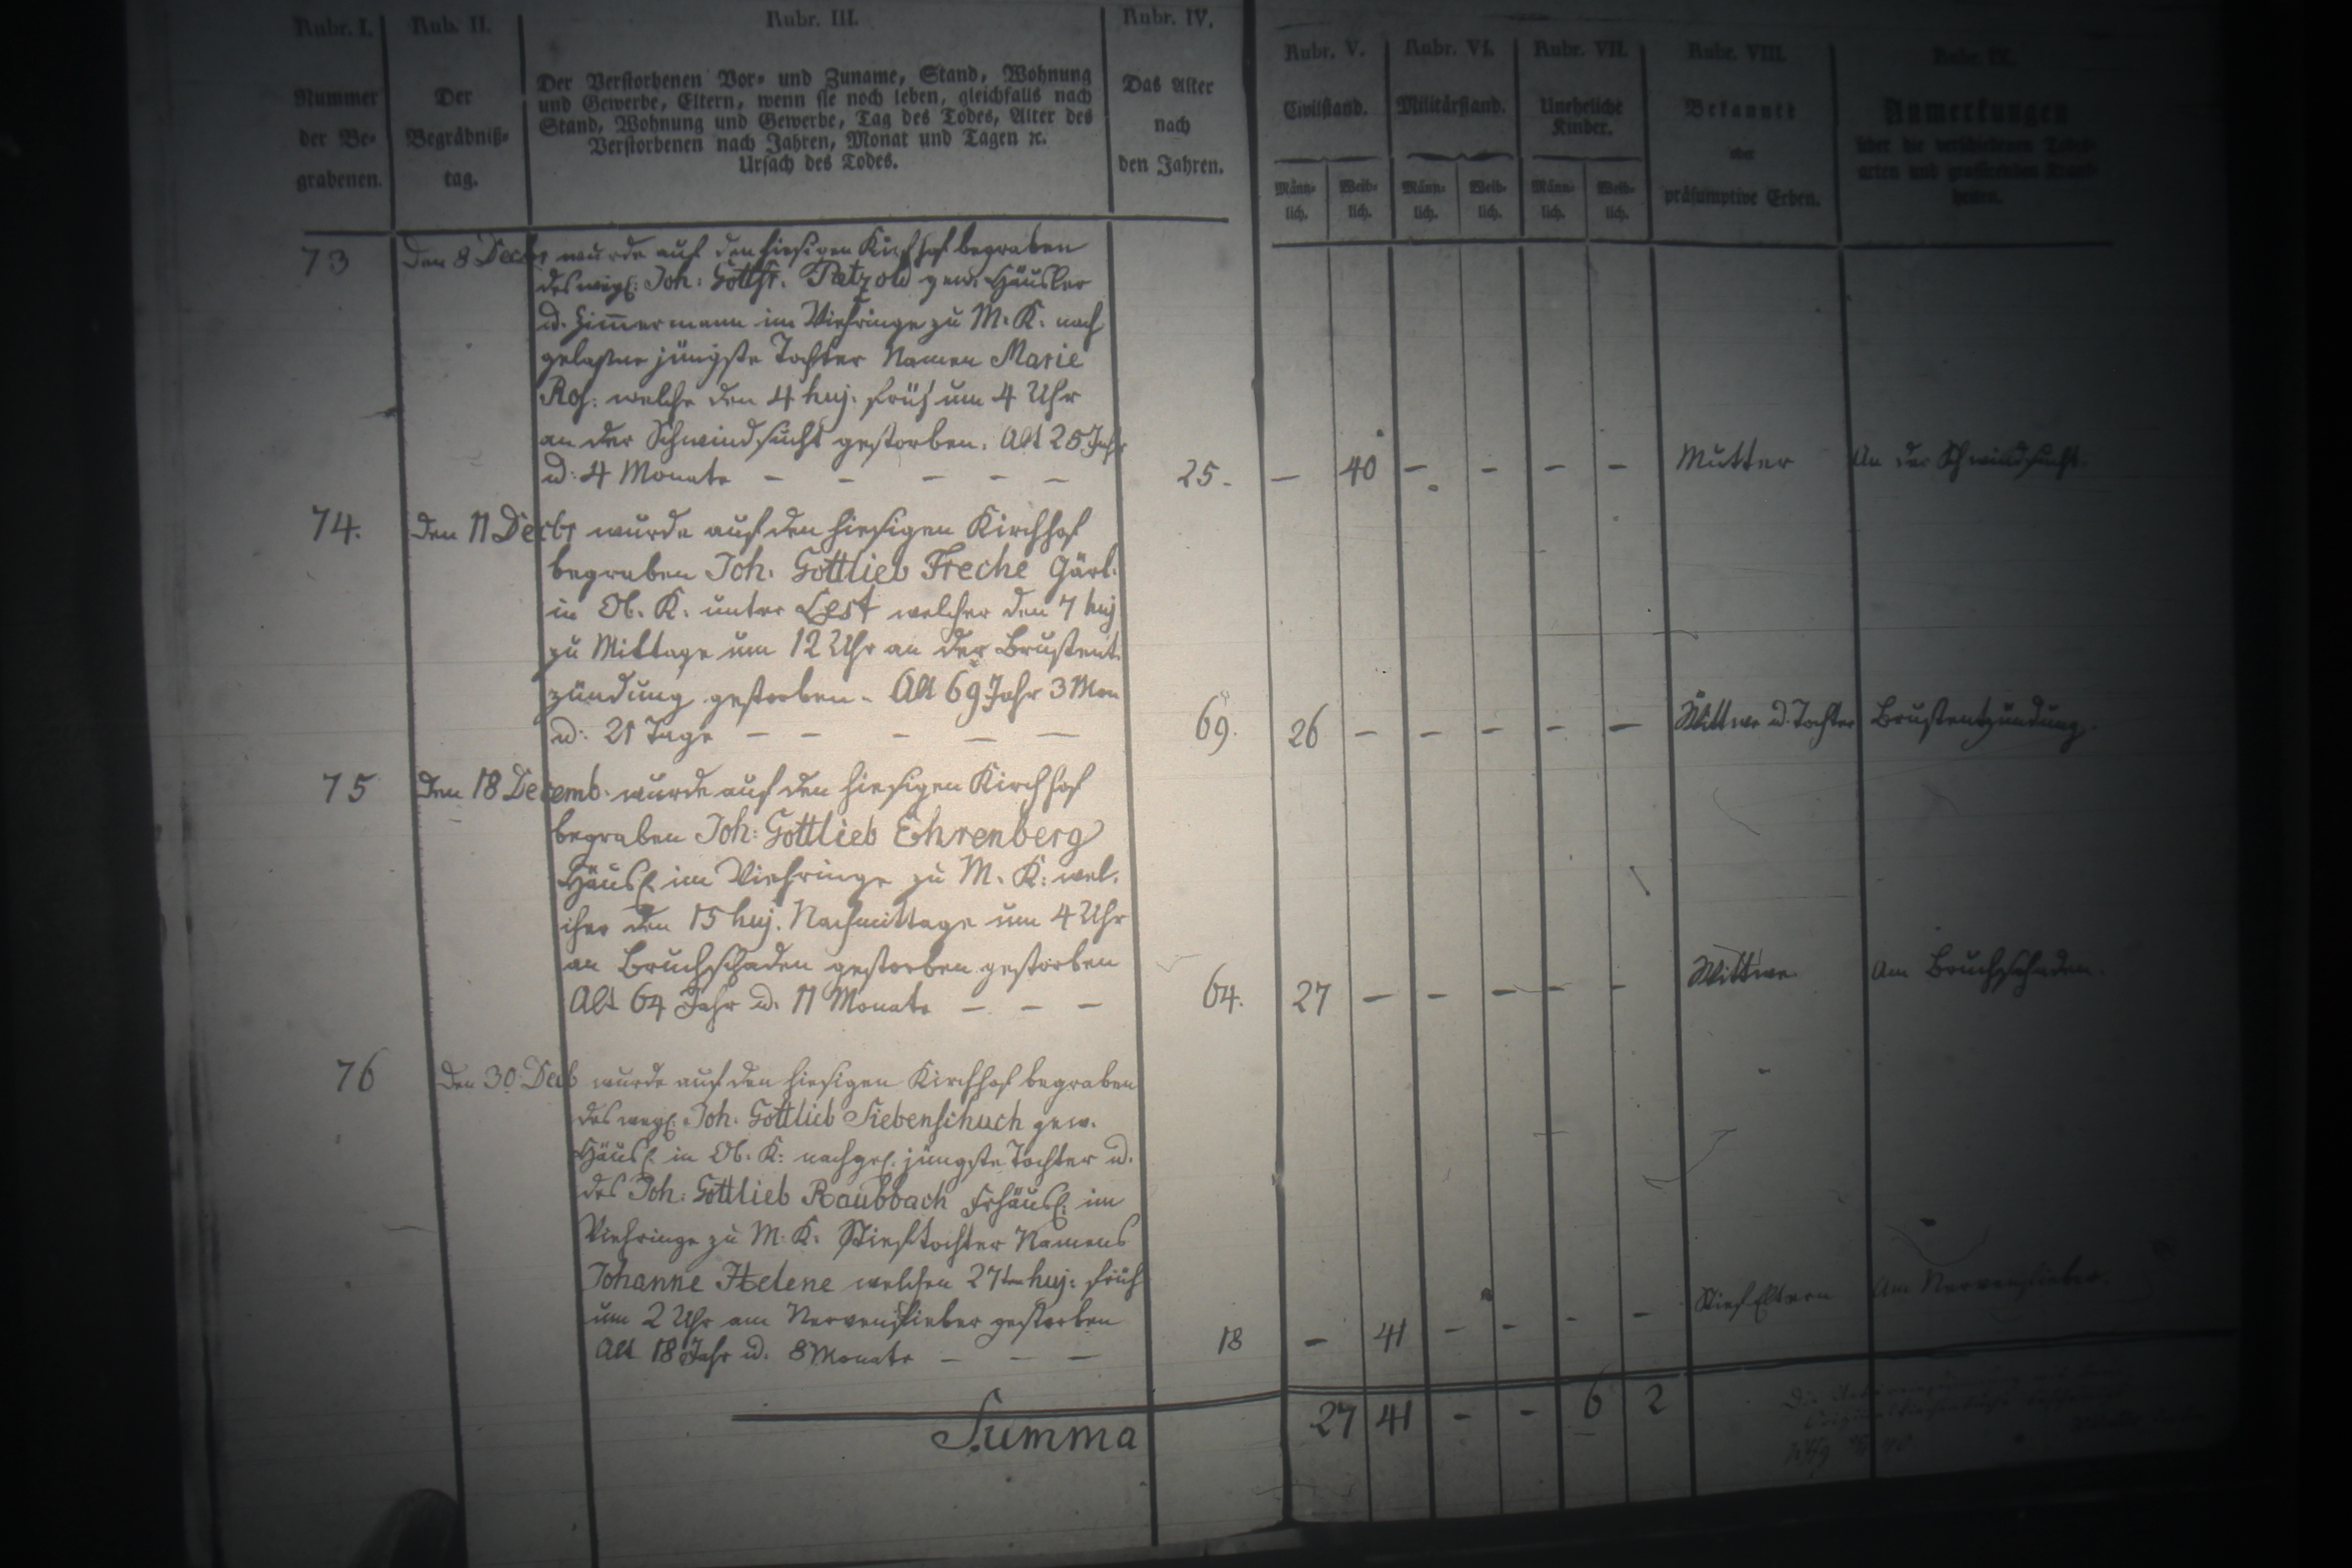 Rubr. I.
Nummer
der Be-
grabenen.
Rub. II.
Der
Begräbniß-
tag.
Rubr. III.
Der Verstorbenen Vor- und Zuname, Stand, Wohnung
und Gewerbe, Eltern, wenn sie noch leben, gleichfalls nach
Stand, Wohnung und Gewerbe, Tag des Todes, Alter des
Verstorbenen nach Jahren, Monat und Tagen ꝛc.
Ursach des Todes.
Rubr. IV.
Das Alter
nach
den Jahren.
Rubr. V.
Civilstand.
Männ-
lich.
Weib-
lich.
Rubr. VI.
Militärstand.
Männ-
lich.
Weib-
lich.
Rubr. VII.
Uneheliche
Kinder.
Männ-
lich.
Weib-
lich.
Rubr. VIII.
Bekannte
oder
präsumptive Erben.
Rubr. IX.
Anmerkungen
über die verschiedenen Todes-
arten und grassirenden Krank-
heiten.
73 den 8 Decbr wurde auf den hiesigen Kirchhof begraben
des weyl: Joh: Gottfr. Petzold gew. Häusler
u. Zimmermann im Viehringe zu M. K. nach
gelaßne jüngste Tochter Namen Marie
Ros: welche den 4 huj. früh um 4 Uhr
an der Schwindsucht gestorben. Alt 25 Jahr
u: 4 Monate – – – – – 25. – 40 – – – – Mutter An der Schwindsucht.
74. den 11 Decbr wurde auf den hiesigen Kirchhof
begraben Joh. Gottlieb Freche Gärt.
in Ob. K. unter welcher den 7 huj
zu Mittage um 12 Uhr an der Brustent.
zündung gestorben. Alt 69 Jahr 3 Mon
u: 21 Tage – – – – – 69. 26 – – – – – Wittwe u. Tochter Brustentzündung.
75 den 18 Decemb. wurde auf den hiesigen Kirchhof
begraben Joh: Gottlieb Ehrenberg
Häusl. im Viehringe zu M. K: wel.
cher den 15 huj. Nachmittage um 4 Uhr
an Bruchschaden gestorben gestorben
Alt 64 Jahr u. 11 Monate – – – 64. 27 – – – – – Wittwe Am Bruchschaden.
76 den 30 Decb wurde auf den hiesigen Kirchhof begraben
des weyl. Joh. Gottlieb Siebenschuch gew.
Häusl. in Ob. K: nachgel. jüngste Tochter u.
des Joh: Gottlieb Raubbach Frhäusl. im
Viehringe zu M: K. Stieftochter Namens
Johanne Helene welchen 27ten huj: früh
um 2 Uhr am Nervenfieber gestorben
Alt 18 Jahr u. 8 Monate – – – 18 – 41 – – – – Stief Eltern Am Nervenfieber.
Summa 27 41 – – 6 2